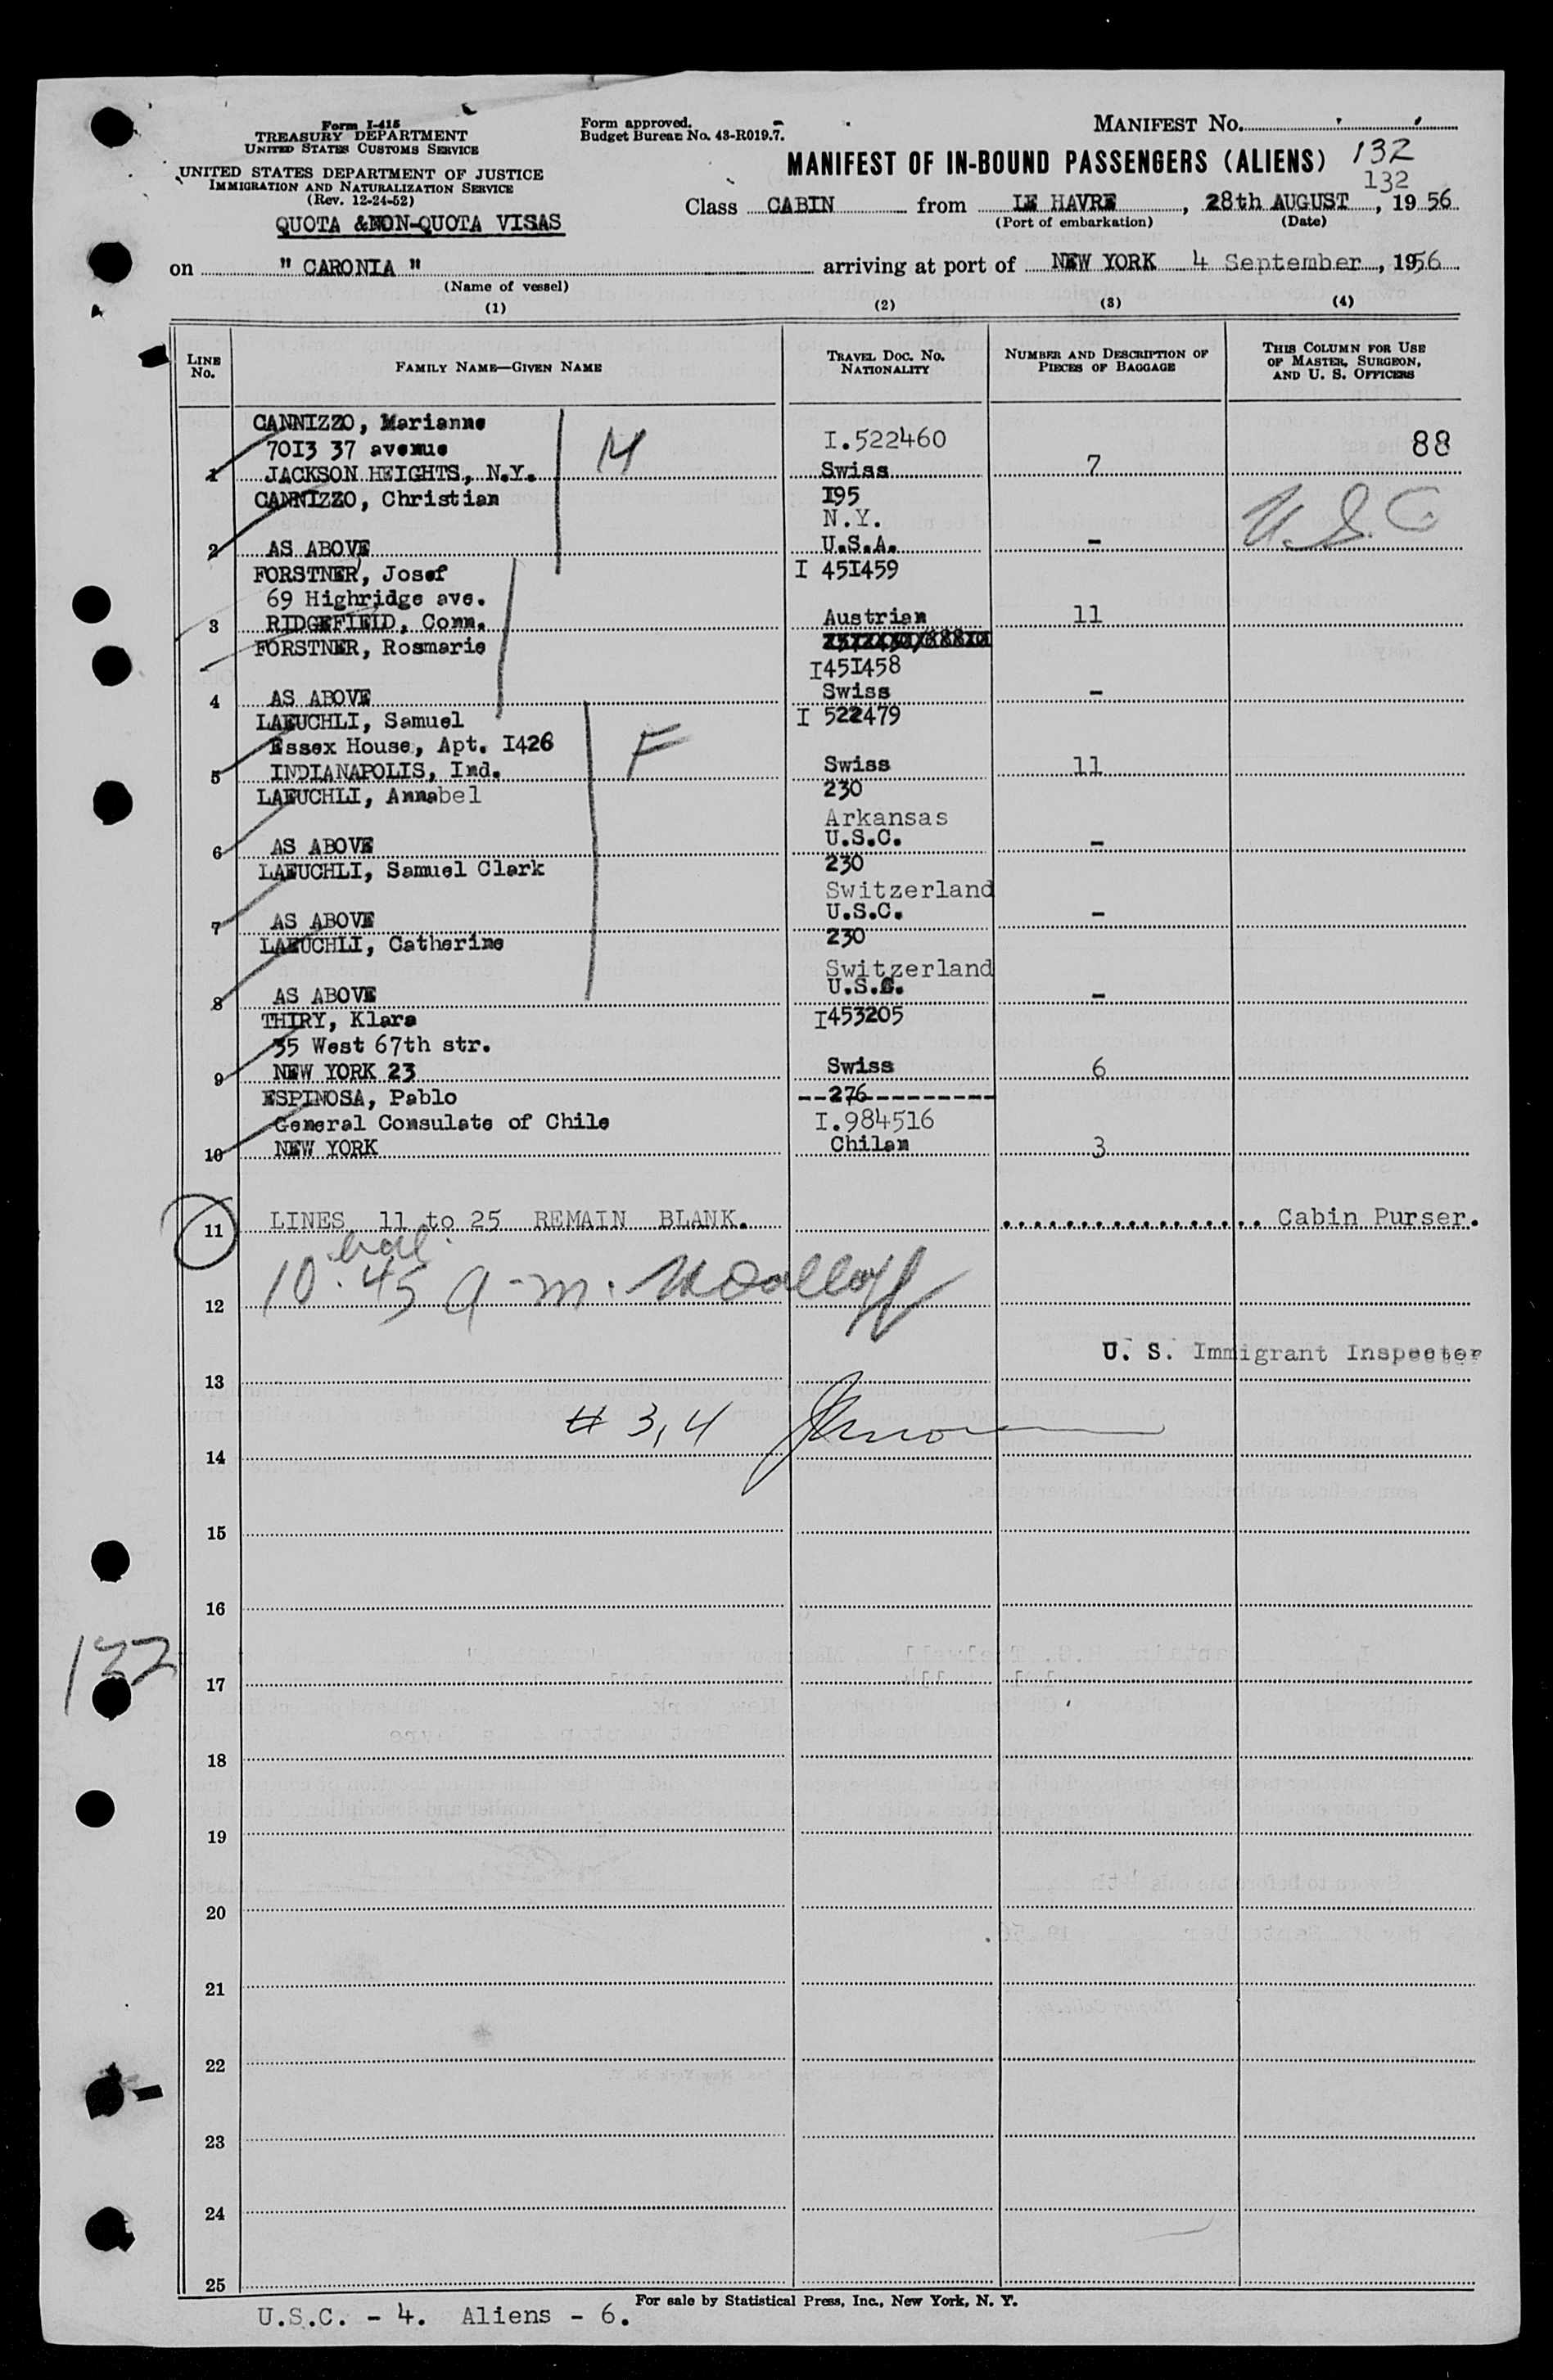 Form I-415
TREASURY DEPARTMENT
UNITED STATES CUSTOMS SERVICE
UNITED STATES DEPARTMENT OF JUSTICE
IMMIGRATION AND NATURALIZATION SERVICE
(Rev. 12-24-52)
QUOTA &NON-QUOTA VISAS
Form approved.
Budget Bureau No. 43-R019.7.
MANIFEST NO.
MANIFEST OF IN-BOUND PASSENGERS (ALIENS) 132
132
Class CABIN from LE HAVRE, 28th AUGUST, 1956
(Port of embarkation) (Date)
on " CARONIA " arriving at port of NEW YORK 4 September, 1956
(Name of vessel)
(1) (2) (3) (4)
LINE NO. FAMILY NAME—GIVEN NAME TRAVEL DOC. NO. NATIONALITY NUMBER AND DESCRIPTION OF PIECES OF BAGGAGE THIS COLUMN FOR USE OF MASTER, SURGEON, AND U. S. OFFICERS
CANNIZZO, Marianne
70I3 37 avenue M I.522460 88
1 JACKSON HEIGHTS, N.Y. Swiss 7
CANNIZZO, Christian I95
N.Y. U.S.C
2 AS ABOVE U.S.A. -
FORSTNER, Josef I 45I459
69 Highridge ave.
3 RIDGEFIELD, Conn. Austrian 11
FORSTNER, Rosmarie
I45I458
4 AS ABOVE Swiss -
LAEUCHLI, Samuel I 522479
Essex House, Apt. I426 F
5 INDIANAPOLIS, Ind. Swiss 11
LAEUCHLI, Annabel 230
Arkansas
6 AS ABOVE U.S.C. -
LAEUCHLI, Samuel Clark 230
Switzerland
7 AS ABOVE U.S.C. -
LAEUCHLI, Catherine 230
Switzerland
8 AS ABOVE U.S.C. -
THIRY, Klara I453205
35 West 67th str.
9 NEW YORK 23 Swiss 6
ESPINOSA, Pablo --276----------
General Consulate of Chile I.984516
10 NEW YORK Chilan 3
11 LINES 11 to 25 REMAIN BLANK. ................ Cabin Purser.
bal.
12 10.45 a-m.
U. S. Immigrant Inspector
13
# 3,4
14
15
16
132
17
18
19
20
21
22
23
24
25
For sale by Statistical Press, Inc., New York, N. Y.
U.S.C. - 4. Aliens - 6.